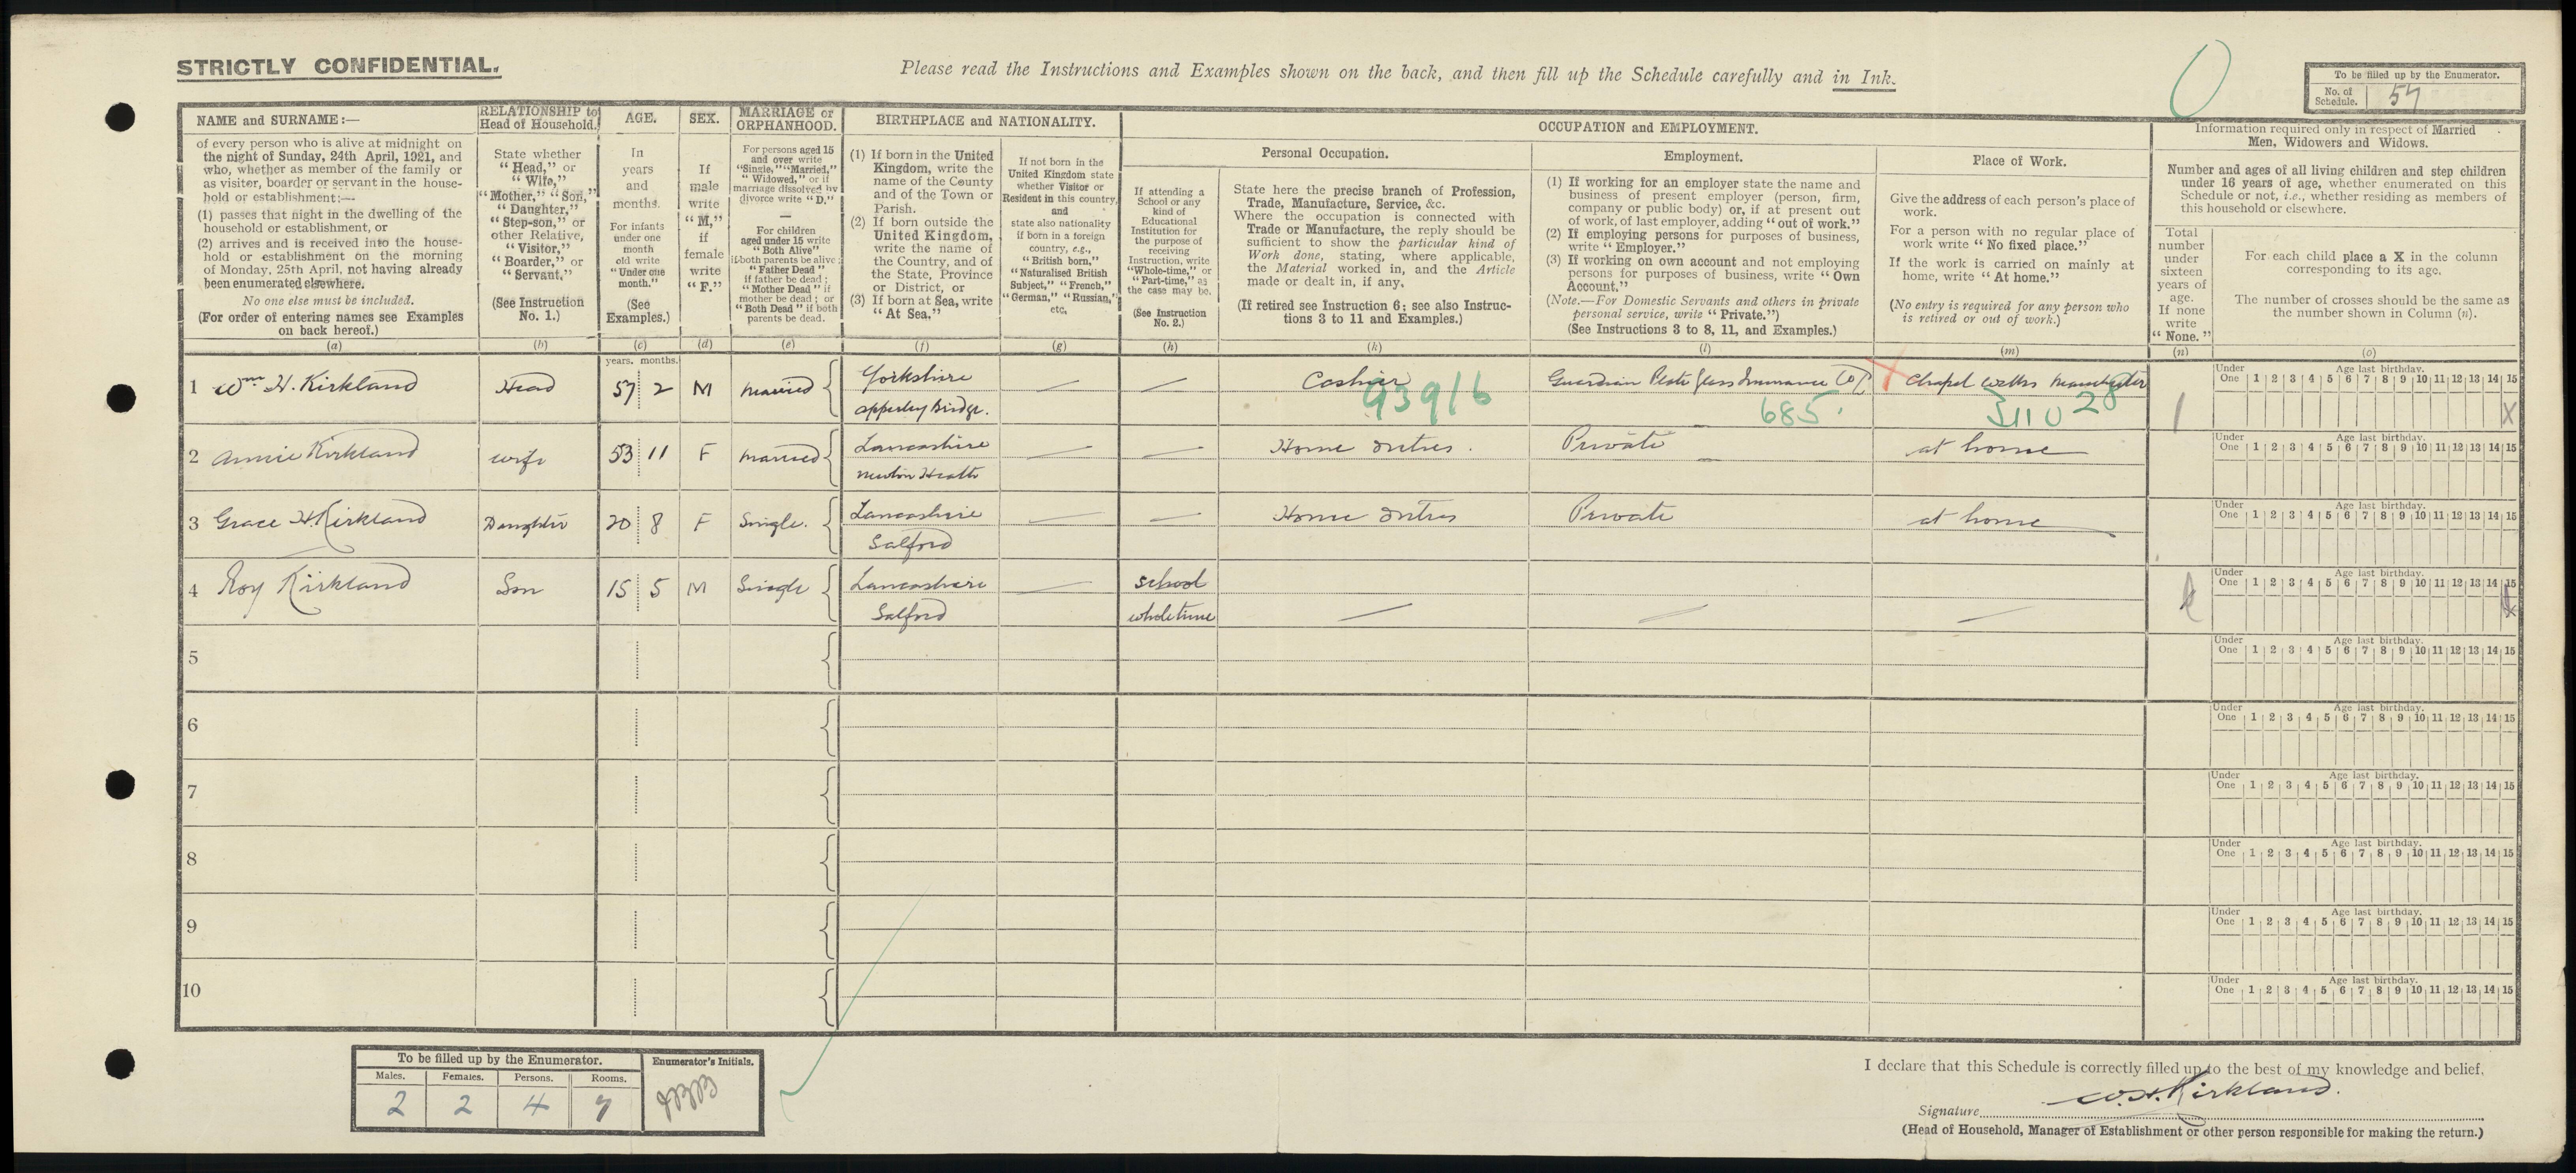 STRICTLY CONFIDENTIAL.
Please read the Instructions and Examples shown on the back, and then fill up the Schedule carefully and in Ink.
To be filled up by the Enumerator.
No. of Schedule. 57
NAME and SURNAME:—
of every person who is alive at midnight on
the night of Sunday, 24th April, 1921, and
who, whether as member of the family or
as visitor, boarder or servant in the house-
hold or establishment:—
(1) passes that night in the dwelling of the
household or establishment, or
(2) arrives and is received into the house-
hold or establishment on the morning
of Monday, 25th April, not having already
been enumerated elsewhere.
No one else must be included.
(For order of entering names see Examples
on back hereof.)
(a)
RELATIONSHIP to
Head of Household.
State whether
"Head," or
"Wife,"
"Mother," "Son,"
"Daughter,"
"Step-son," or
other Relative,
"Visitor,"
"Boarder," or
"Servant."
(See Instruction
No. 1.)
(b)
AGE.
In
years
and
months.
For infants
under one
month
old write
"Under one
month."
(See
Examples.)
(c)
SEX.
If
male
write
"M,"
if
female
write
"F."
(d)
MARRIAGE or
ORPHANHOOD.
For persons aged 15
and over write
"Single," "Married,"
"Widowed," or if
marriage dissolved by
divorce write "D."
—
For children
aged under 15 write
"Both Alive"
if both parents be alive;
"Father Dead"
if father be dead;
"Mother Dead" if
mother be dead; or
"Both Dead" if both
parents be dead.
(e)
BIRTHPLACE and NATIONALITY.
(1) If born in the United
Kingdom, write the
name of the County
and of the Town or
Parish.
(2) If born outside the
United Kingdom,
write the name of
the Country, and of
the State, Province
or District, or
(3) If born at Sea, write
"At Sea."
(f)
If not born in the
United Kingdom state
whether Visitor or
Resident in this country,
and
state also nationality
if born in a foreign
country, e.g.,
"British born,"
"Naturalised British
Subject," "French,"
"German," "Russian,"
etc.
(g)
OCCUPATION and EMPLOYMENT.
If attending a
School or any
kind of
Educational
Institution for
the purpose of
receiving
Instruction, write
"Whole-time," or
"Part-time," as
the case may be.
(See Instruction
No. 2.)
(h)
Personal Occupation.
State here the precise branch of Profession,
Trade, Manufacture, Service, &c.
Where the occupation is connected with
Trade or Manufacture, the reply should be
sufficient to show the particular kind of
Work done, stating, where applicable,
the Material worked in, and the Article
made or dealt in, if any.
(If retired see Instruction 6; see also Instruc-
tions 3 to 11 and Examples.)
(k)
Employment.
(1) If working for an employer state the name and
business of present employer (person, firm,
company or public body) or, if at present out
of work, of last employer, adding "out of work."
(2) If employing persons for purposes of business,
write "Employer."
(3) If working on own account and not employing
persons for purposes of business, write "Own
Account."
(Note.—For Domestic Servants and others in private
personal service, write "Private.")
(See Instructions 3 to 8, 11, and Examples.)
(l)
Place of Work.
Give the address of each person's place of
work.
For a person with no regular place of
work write "No fixed place."
If the work is carried on mainly at
home, write "At home."
(No entry is required for any person who
is retired or out of work.)
(m)
Information required only in respect of Married
Men, Widowers and Widows.
Number and ages of all living children and step children
under 16 years of age, whether enumerated on this
Schedule or not, i.e., whether residing as members of
this household or elsewhere.
Total
number
under
sixteen
years of
age.
If none
write
"None."
(n)
For each child place a X in the column
corresponding to its age.
The number of crosses should be the same as
the number shown in Column (n).
(o)
years. months.
1 Wm H. Kirkland Head 57 2 M Married Yorkshire Cashier Guardian Plate Glass Insurance Co Chapel Walks Manchester
Apperley Bridge. 939/6 685 1 X
Under One 1 2 3 4 5 6 7 8 9 10 11 12 13 14 15
Age last birthday.
2 Annie Kirkland Wife 53 11 F Married Lancashire Home Duties. Private at home
Newton Heath
Under One 1 2 3 4 5 6 7 8 9 10 11 12 13 14 15
Age last birthday.
3 Grace H. Kirkland Daughter 20 8 F Single. Lancashire Home Duties Private at home
Salford
Under One 1 2 3 4 5 6 7 8 9 10 11 12 13 14 15
Age last birthday.
4 Roy Kirkland Son 15 5 M Single Lancashire school
Salford whole time
Under One 1 2 3 4 5 6 7 8 9 10 11 12 13 14 15
Age last birthday.
5
Under One 1 2 3 4 5 6 7 8 9 10 11 12 13 14 15
Age last birthday.
6
Under One 1 2 3 4 5 6 7 8 9 10 11 12 13 14 15
Age last birthday.
7
Under One 1 2 3 4 5 6 7 8 9 10 11 12 13 14 15
Age last birthday.
8
Under One 1 2 3 4 5 6 7 8 9 10 11 12 13 14 15
Age last birthday.
9
Under One 1 2 3 4 5 6 7 8 9 10 11 12 13 14 15
Age last birthday.
10
Under One 1 2 3 4 5 6 7 8 9 10 11 12 13 14 15
Age last birthday.
To be filled up by the Enumerator.
Males. Females. Persons. Rooms.
2 2 4 7
Enumerator's Initials.
I declare that this Schedule is correctly filled up to the best of my knowledge and belief.
Signature W. H. Kirkland.
(Head of Household, Manager of Establishment or other person responsible for making the return.)